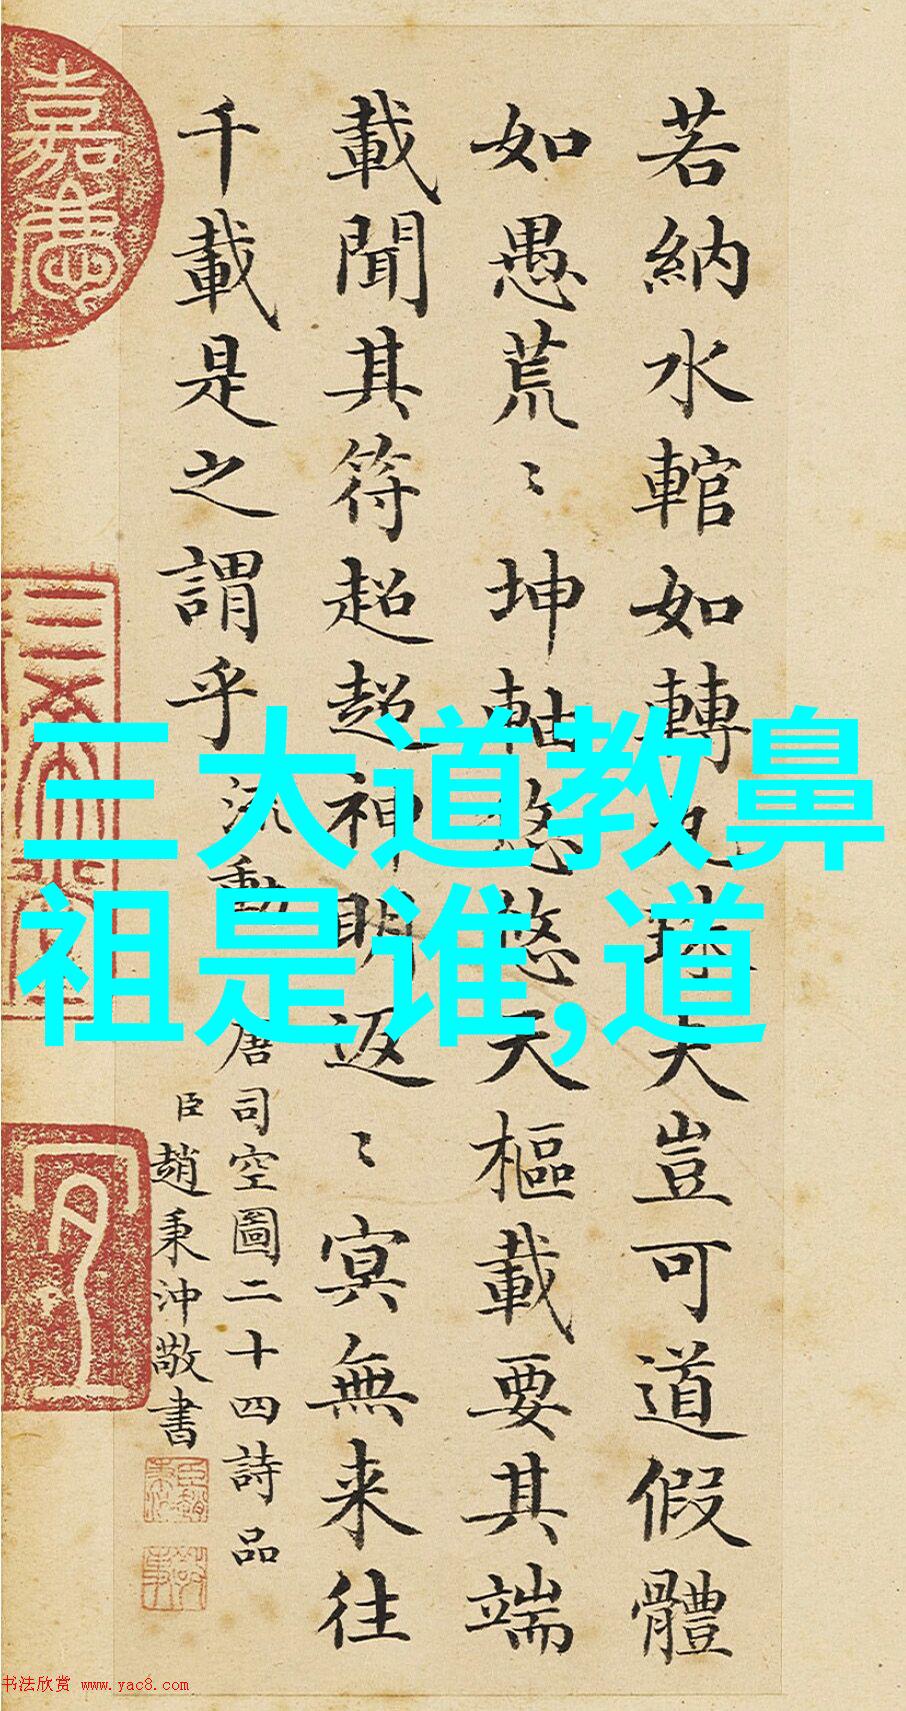 若納水輨如轉丸珠夫豈可道假體
如愚荒〻坤軸悠悠天樞載要其端
載聞其符超超神明返〻冥無来往
千載是之謂乎
流動
唐司空圖二十四詩品
臣趙秉沖敬書
嘉慶
三大道教鼻
祖是谁,道
书法欣赏 www.yac8.com